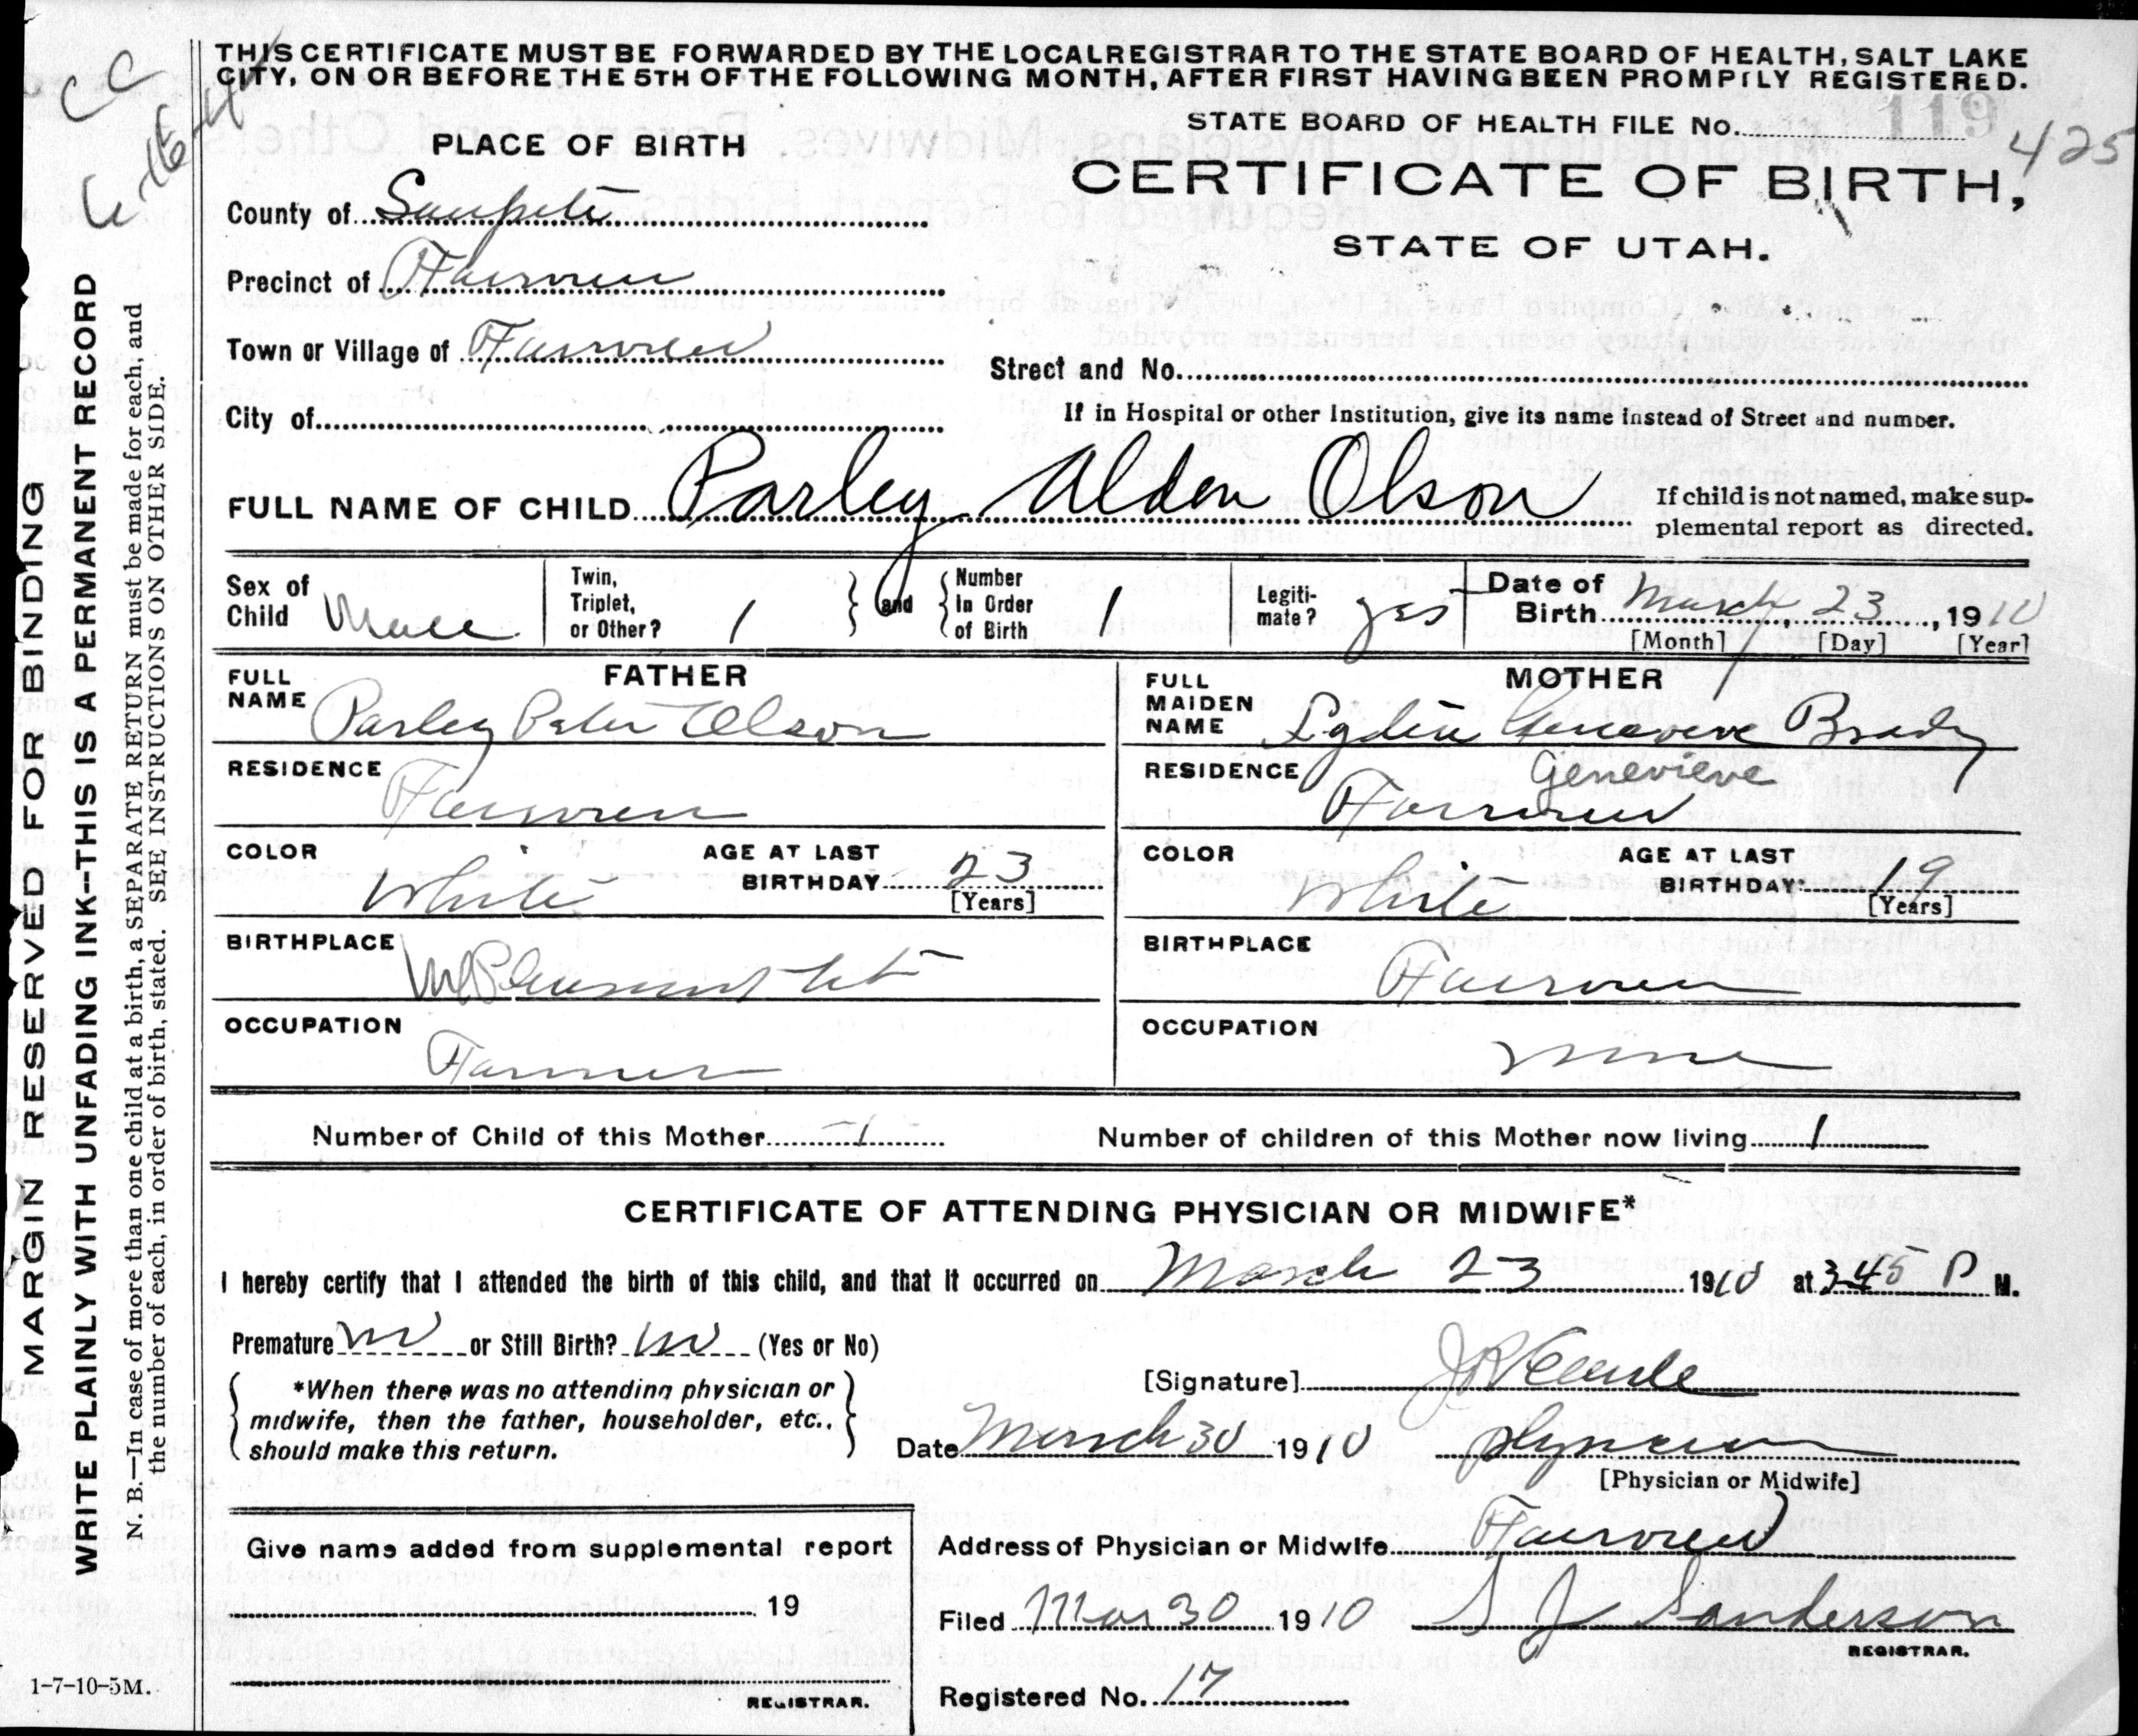 THIS CERTIFICATE MUST BE FORWARDED BY THE LOCAL REGISTRAR TO THE STATE BOARD OF HEALTH, SALT LAKE
CITY, ON OR BEFORE THE 5TH OF THE FOLLOWING MONTH, AFTER FIRST HAVING BEEN PROMPTLY REGISTERED.
CC
STATE BOARD OF HEALTH FILE No. 119
425
PLACE OF BIRTH
CERTIFICATE OF BIRTH,
STATE OF UTAH.
County of Sanpete
Precinct of Fairview
Town or Village of Fairview
Street and No.
City of
If in Hospital or other Institution, give its name instead of Street and number.
FULL NAME OF CHILD Parley Alden Olson
If child is not named, make sup-
plemental report as directed.
Sex of Child Male
Twin, Triplet, or Other? 1
and
Number In Order of Birth 1
Legiti-mate? yes
Date of Birth March 23, 1910
[Month] [Day] [Year]
FATHER
FULL NAME Parley Peter Olson
RESIDENCE Fairview
COLOR White
AGE AT LAST BIRTHDAY 23
[Years]
BIRTHPLACE Mt Pleasant Ut
OCCUPATION Farmer
MOTHER
FULL MAIDEN NAME Genevieve Brady
Genevieve
RESIDENCE Fairview
COLOR White
AGE AT LAST BIRTHDAY 19
[Years]
BIRTHPLACE Fairview
OCCUPATION none
Number of Child of this Mother 1
Number of children of this Mother now living 1
CERTIFICATE OF ATTENDING PHYSICIAN OR MIDWIFE*
I hereby certify that I attended the birth of this child, and that it occurred on March 23 1910 at 3 45 P M.
Premature no or Still Birth? no (Yes or No)
*When there was no attending physician or
midwife, then the father, householder, etc.,
should make this return.
[Signature]
Date March 30 1910 physician
[Physician or Midwife]
Give name added from supplemental report
19
REGISTRAR.
Address of Physician or Midwife Fairview
Filed Mar 30 1910 S J Sanderson
REGISTRAR.
Registered No. 17
MARGIN RESERVED FOR BINDING
WRITE PLAINLY WITH UNFADING INK—THIS IS A PERMANENT RECORD
N. B.—In case of more than one child at a birth, a SEPARATE RETURN must be made for each, and
the number of each, in order of birth, stated. SEE INSTRUCTIONS ON OTHER SIDE.
1-7-10-5M.